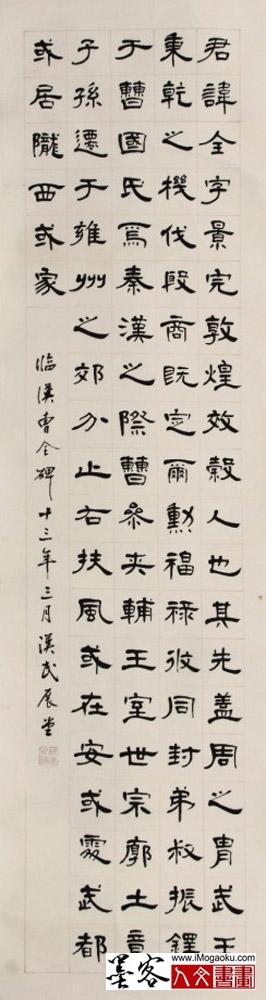 君諱全字景完敦煌效穀人也其先蓋周之胄武王
秉乾之機伐殷商既定爾勳福祿攸同封弟叔振鐸
于曹國氏焉秦漢之際曹參夾輔王室世宗廓土竟
子孫遷于雍州之郊分止右扶風或在安或處武都
或居隴西或家
臨漢曹全碑十三年三月漢武展堂
www.iMogaoku.com
墨客人文書畫